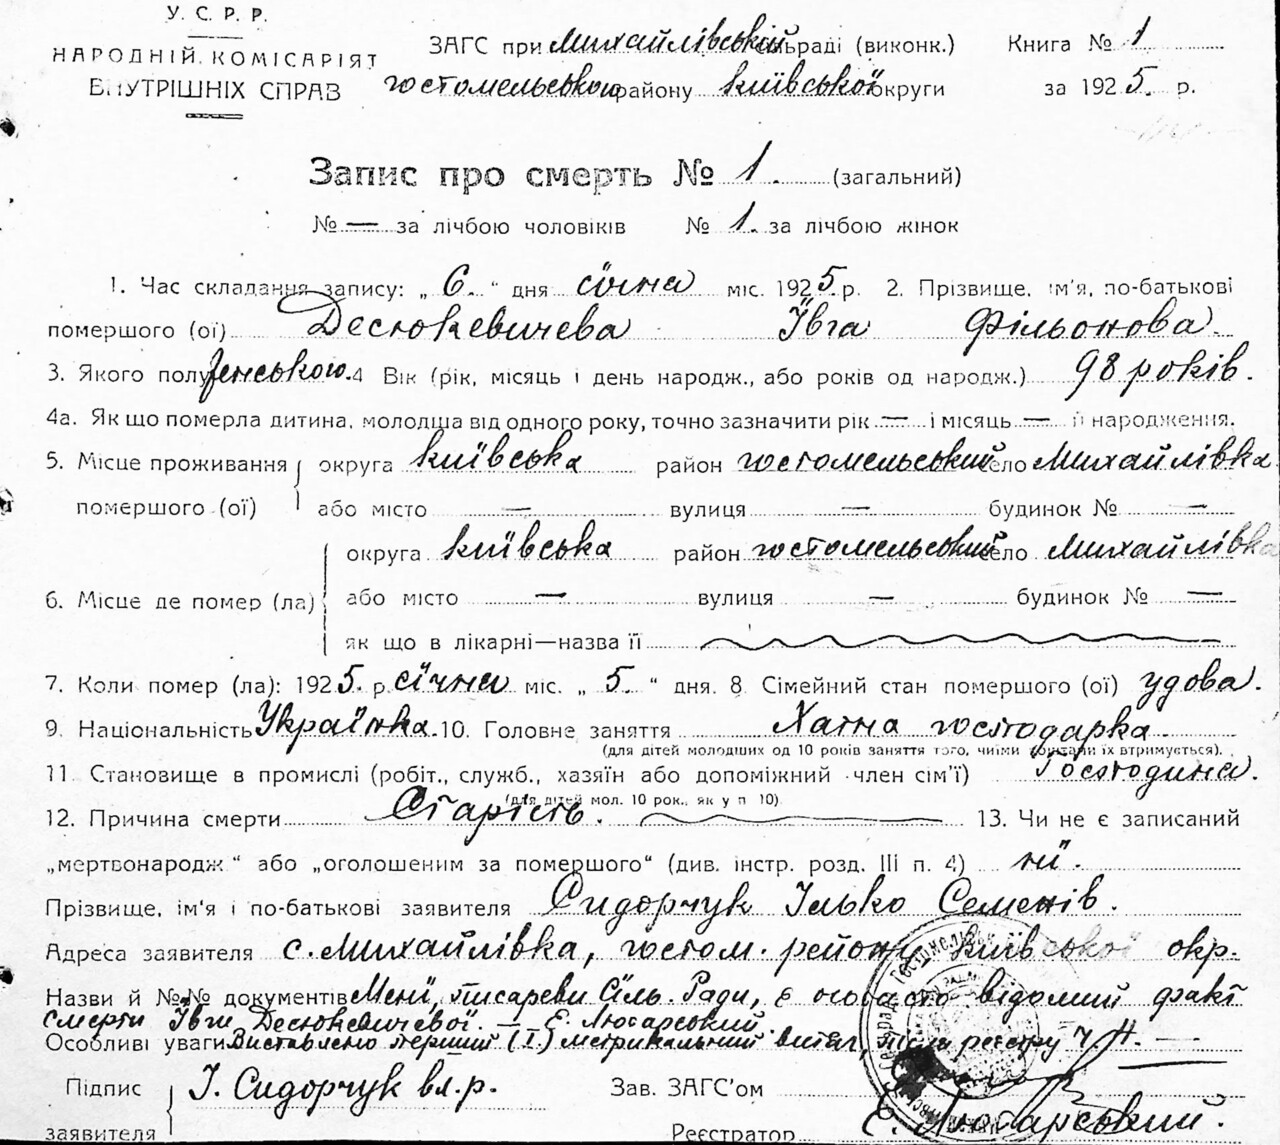 У. С. Р. Р.
НАРОДНІЙ КОМІСАРІЯТ
ВНУТРІШНІХ СПРАВ
ЗАГС при Михайлівській сільраді (виконк.) Книга № 1
гостомельського району київської округи за 1925. р.
Запис про смерть № 1. (загальний)
№ — за лічбою чоловіків № 1. за лічбою жінок
1. Час складання запису: „ 6. " дня січня міс. 1925 р. 2. Прізвище, ім'я, по-батькові
помершого (ої) Десюкевичева Ївга Фільонова.
3. Якого полу женського. 4 Вік (рік, місяць і день народж., або років од народж.) 98 років.
4а. Як що померла дитина, молодша від одного року, точно зазначити рік — і місяць — її народження.
5. Місце проживання помершого (ої) округа київська район гостомельський село Михайлівка.
або місто — вулиця — будинок № —
6. Місце де помер (ла) округа київська район гостомельський село Михайлівка
або місто — вулиця — будинок № —
як що в лікарні—назва її
7. Коли помер (ла): 1925. р. січня міс. „ 5. " дня. 8 Сімейний стан помершого (ої) удова.
9. Національність Українка. 10. Головне заняття Хатна господарка.
(для дітей молодших од 10 років заняття того, чиїми коштами їх втримується).
11. Становище в промислі (робіт., служб., хазяїн або допоміжний член сім'ї) Господиня.
(для дітей мол. 10 рок., як у п 10)
12. Причина смерти Старість. 13. Чи не є записаний
„мертвонародж" або „оголошеним за помершого" (див. інстр. розд. III п. 4) ні.
Прізвище, ім'я і по-батькові заявителя Сидорчук Ілько Семенів.
Адреса заявителя с. Михайлівка, гостом. району Київської окр.
Назви й №№ документів Мені, писареви Сіль. Ради, є особисто відомий факт
смерти Ївги Десюкевичевої. — Є. Люсарський.
Особливі уваги Виставлено перший (I) метрикальний витяг, після реєстру ч.
Підпис заявителя І. Сидорчук вл.р. Зав. ЗАГС'ом
Реєстратор Є. Люсарський.